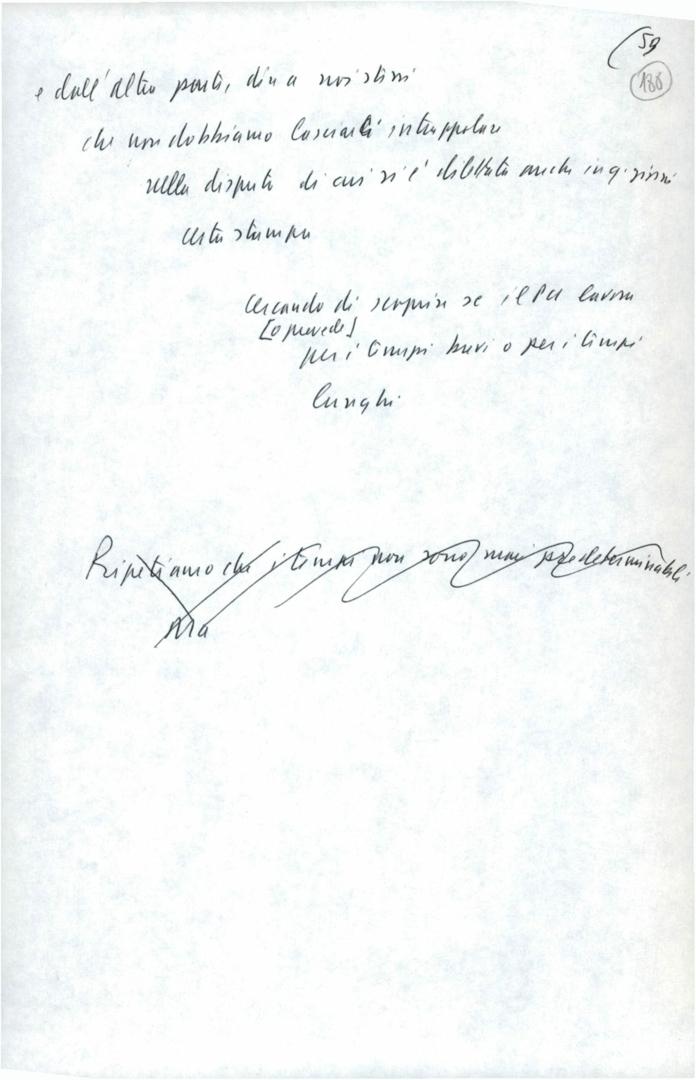 59
186
e dall'altra parte, dire a noi stessi
che non dobbiamo lasciarci intrappolare
nella disputa di cui si è dilettata anche in q. giorni
certa stampa
cercando di scoprire se il PCI lavora
[o prevede]
per i tempi brevi o per i tempi
lunghi.
Ripetiamo che i tempi non sono mai predeterminabili
Ma